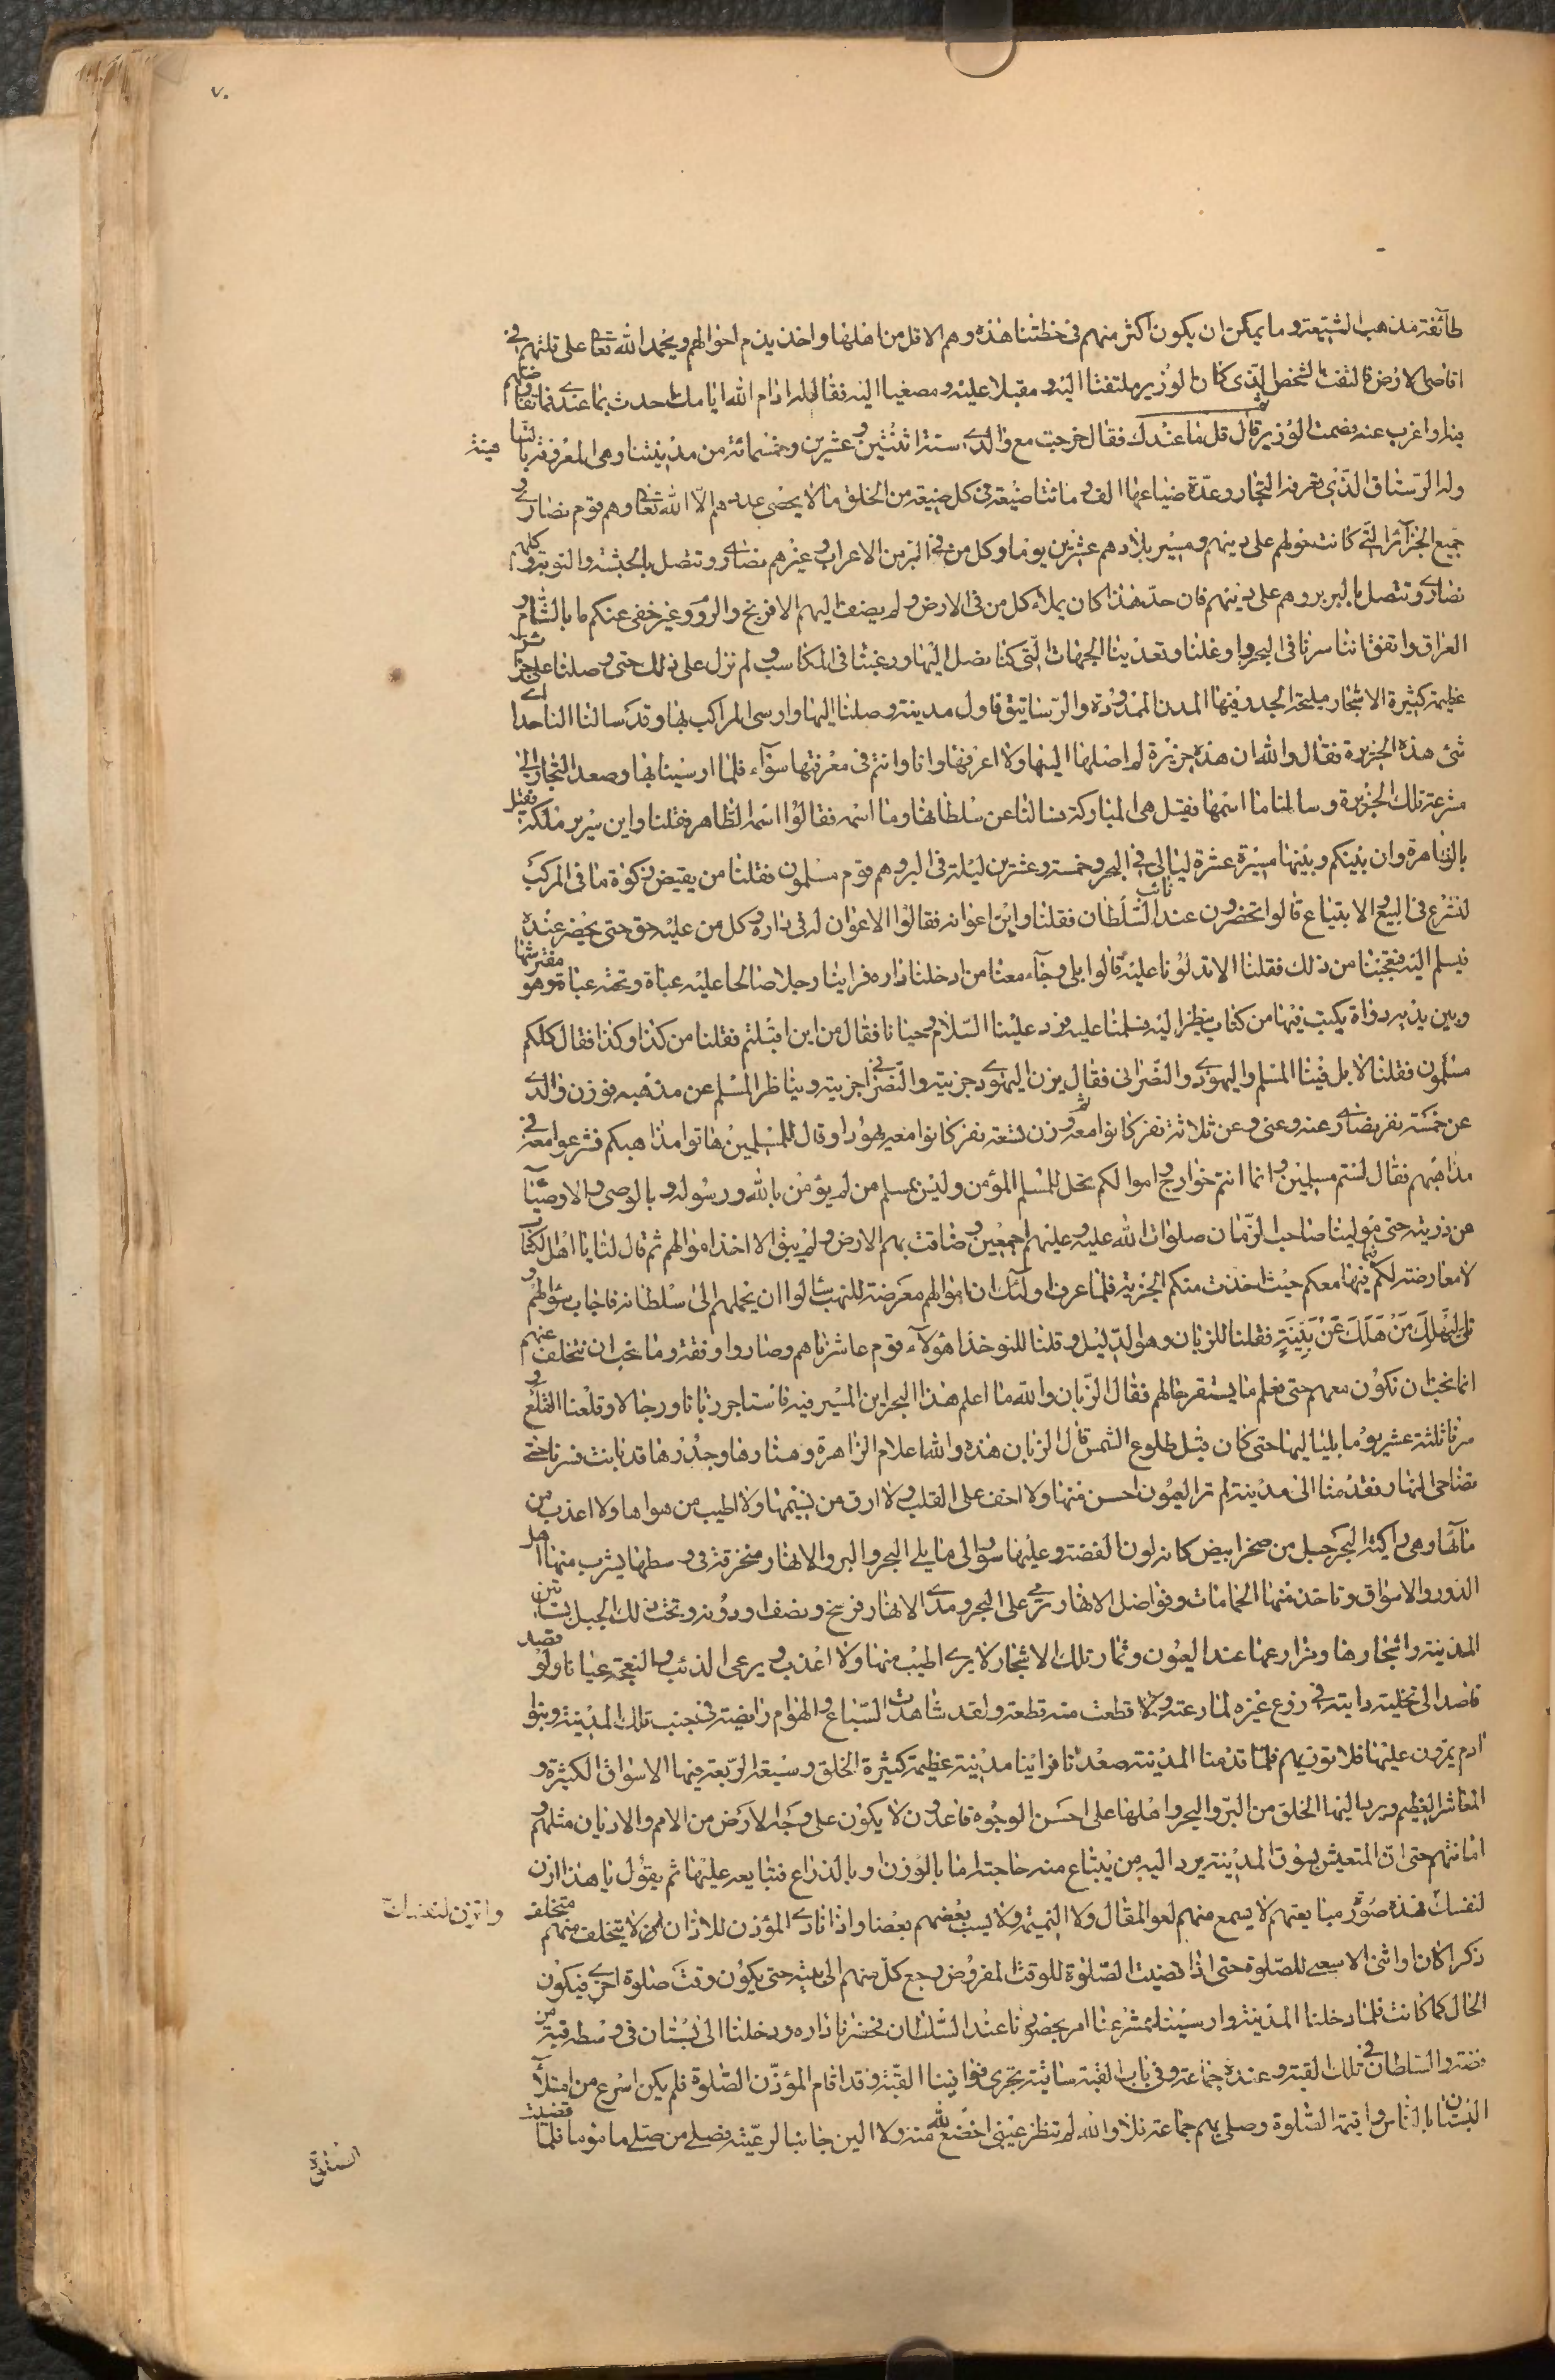 ٧٠
طائفة مذهب الشيعة وما يمكن ان يكون اكثر منهم في خطتنا هذه وهم الاقل من اهلها واخذ يذم احوالهم ويحمد الله تعالى على قلتهم في
اقاصي الارض فالتفت الشخص الذي كان الوزير ملتفتا اليه ومقبلا عليه ومصغيا اليه فقال له ادام الله ايامك احدث بما عندي فيما تفاوضتم
فيه او اعرب عنه فصمت الوزير ثم قال قل ما عندك فقال خرجت مع والدي سنة اثنتين وعشرين وخمسمائة من مدينتنا وهي المعروفة بالباهية
وله الرستاق الذي يعرفه التجار وعدة ضياعها الف ومائتا ضيعة في كل ضيعة من الخلق ما لا يحصى عددهم الا الله تعالى وهم قوم نصارى و
جميع الجزائر التي كانت حولهم على دينهم ومسير بلادهم عشرين يوما وكل من في البر من الاعراب وغيرهم نصارى وتتصل بالحبشة والنوبة وكلهم
نصارى وتتصل بالبربر وهم على دينهم فان حد هذا كان بملاء كل من في الارض ولم يضف اليهم الافرنج والروم وغير خفي عنكم ما بالشام و
العراق واتفق اننا سرنا في البحر واوغلنا وتعدينا الجهات التي كنا نصل اليها ورغبنا في المكاسب ولم نزل على ذلك حتى وصلنا على جزائر
عظيمة كثيرة الاشجار مليحة الجدد فيها المدن الممدودة والرساتيق فاول مدينة وصلنا اليها وارسى المراكب بها وقد سالنا الناخدا اي
شئ هذه الجزيرة فقال والله ان هذه جزيرة لم اصل اليها ولا اعرفها وانا وانتم في معرفتها سواء فلما ارسينا بها وصعد التجار الى
مشرعة تلك الجزيرة وسالنا ما اسمها فقيل هي المباركة سالنا عن سلطانها وما اسمه فقالوا اسمه الطاهر فقلنا واين سرير ملكه فقيل
بالزاهرة وان بينكم وبينها مسيرة عشرة ليالي في البحر وخمسة وعشرين ليلة في البر وهم قوم مسلمون فقلنا من يقبض زكوة ما في المركب
لنشرع في البيع والابتياع قالوا تحضرون عند نائب السلطان فقلنا واين اعوانه فقالوا لا اعوان له في داره وكل من عليه حق حتى يحضر عنده
فيسلم اليه فتعجبنا من ذلك فقلنا الا تدلونا عليه قالوا بلى وجاء معنا من ادخلنا داره فراينا رجلا صالحا عليه عباة وتحته عباة وهو مفترشها
وبين يديه دواة يكتب فيها من كتاب ينظر اليه فسلمنا عليه فرد علينا السلام وحيانا فقال من اين اقبلتم فقلنا من كذا وكذا فقال كلكم
مسلمون فقلنا لا بل فينا المسلم واليهودي والنصراني فقال يزن اليهودي جزيته والنصراني جزيته ويناظر المسلم عن مذهبه فوزن والدي
عن خمسة نفر نصارى عنه وعني وعن ثلاثة نفر كانوا معه ثم وزن تسعة نفر كانوا معه يهودا وقال للمسلمين هاتوا مذاهبكم فشرعوا معه في
مذاهبهم فقال لستم مسلمين وانما انتم خوارج واموالكم تحل للمسلم المؤمن وليس بمسلم من لم يؤمن بالله ورسوله وبالوصي والاوصياء
من ذريته حتى مولينا صاحب الزمان صلوات الله عليه وعليهم اجمعين وضاقت بهم الارض ولم يبق الا اخذ اموالهم ثم قال لنا يا اهل الكتاب
لا معارضة لكم فيما معكم حيث اخذت منكم الجزية فلما عرف اولئك ان اموالهم معرضة للنهب سالوا ان يحملهم الى سلطانه فاجاب سؤالهم و
تلى ليهلك من هلك عن بينة فقلنا للربان وهو الدليل وقلنا للنوخذا هؤلاء قوم عاشرناهم وصاروا رفقة وما نحب ان نتخلف عنهم
انما نحب ان نكون معهم حتى نعلم ما يستقر حالهم فقال الربان والله ما اعلم هذا البحر اين المسير فيه فاستاجر ربانا ورجالا وقلعنا القلع و
سرنا ثلثة عشر يوما بلياليها حتى كان قبل طلوع الشمس قال الربان هذه والله اعلام الزاهرة ومنارها وجدرها قد بانت فسرنا حتى
تضاحى النهار وتقدمنا الى مدينة لم تر العيون احسن منها ولا اخف على القلب ولا ارق من نسيمها ولا اطيب من هواها ولا اعذب من
مائها وهي راكبة البحر جبل من صخر ابيض كانه لون الفضة وعليها سور الى ما يلي البحر والبر والانهار منخرقة في وسطها يشرب منها اهل
الدور والاسواق وتاخذ منها الحمامات وفواضل الانهار ترمى على البحر ومدى الانهار فرسخ ونصف او دونه وتحت ذلك الجبل بساتين
المدينة واشجارها ومزارعها عند العيون وثمار تلك الاشجار لا يرى اطيب منها ولا اعذب ويرعى الذئب والنعجة عيانا ولو قصد
قاصد الى تخلية دابته في زرع غيره لما رعته ولا قطعت منه قطعة ولقد شاهدت السباع والهوام رابضة في جنب تلك المدينة وبنو
ادم يمرون عليها فلا تؤذيهم فلما قدمنا المدينة صعدنا فراينا مدينة عظيمة كثيرة الخلق وسيعة الربعة فيها الاسواق الكثيرة و
المعاش العظيم ويرد اليها الخلق من البر والبحر واهلها على احسن الوجوه قاعدون لا يكون على وجه الارض من الامم والاديان مثلهم و
امانتهم حتى ان المتعيش بسوق المدينة يرد اليه من يبتاع منه حاجته اما بالوزن او بالذراع فيبايعه عليها ثم يقول يا هذا ازن
لنفسك فهذه صورة مبايعتهم لا يسمع منهم لغو المقال ولا النميمة ولا يسب بعضهم بعضا واذا نادى المؤذن للاذان لا يتخلف منهم متخلف
ذكرا كان او انثى الا سعى للصلوة حتى اذا قضيت الصلوة للوقت المفروض رجع كل منهم الى بيته حتى يكون وقت صلوة اخرى فيكون
الحال كما كانت فلما دخلنا المدينة وارسينا بمشرعها امر بحضورنا عند السلطان فحضرنا داره ودخلنا الى بستان في وسطه قبة من
قصب والسلطان في تلك القبة وعنده جماعة وفي باب القبة ساقية تجري فوافينا القبة وقد اقام المؤذن الصلوة فلم يكن اسرع من امتلاء
البستان بالناس واقيمت الصلوة وصلى بهم جماعة فلا والله لم تنظر عيني اخضع لله منه ولا الين جانبا لرعيته فصلى من صلى ماموما فلما قضيت
الصلوة